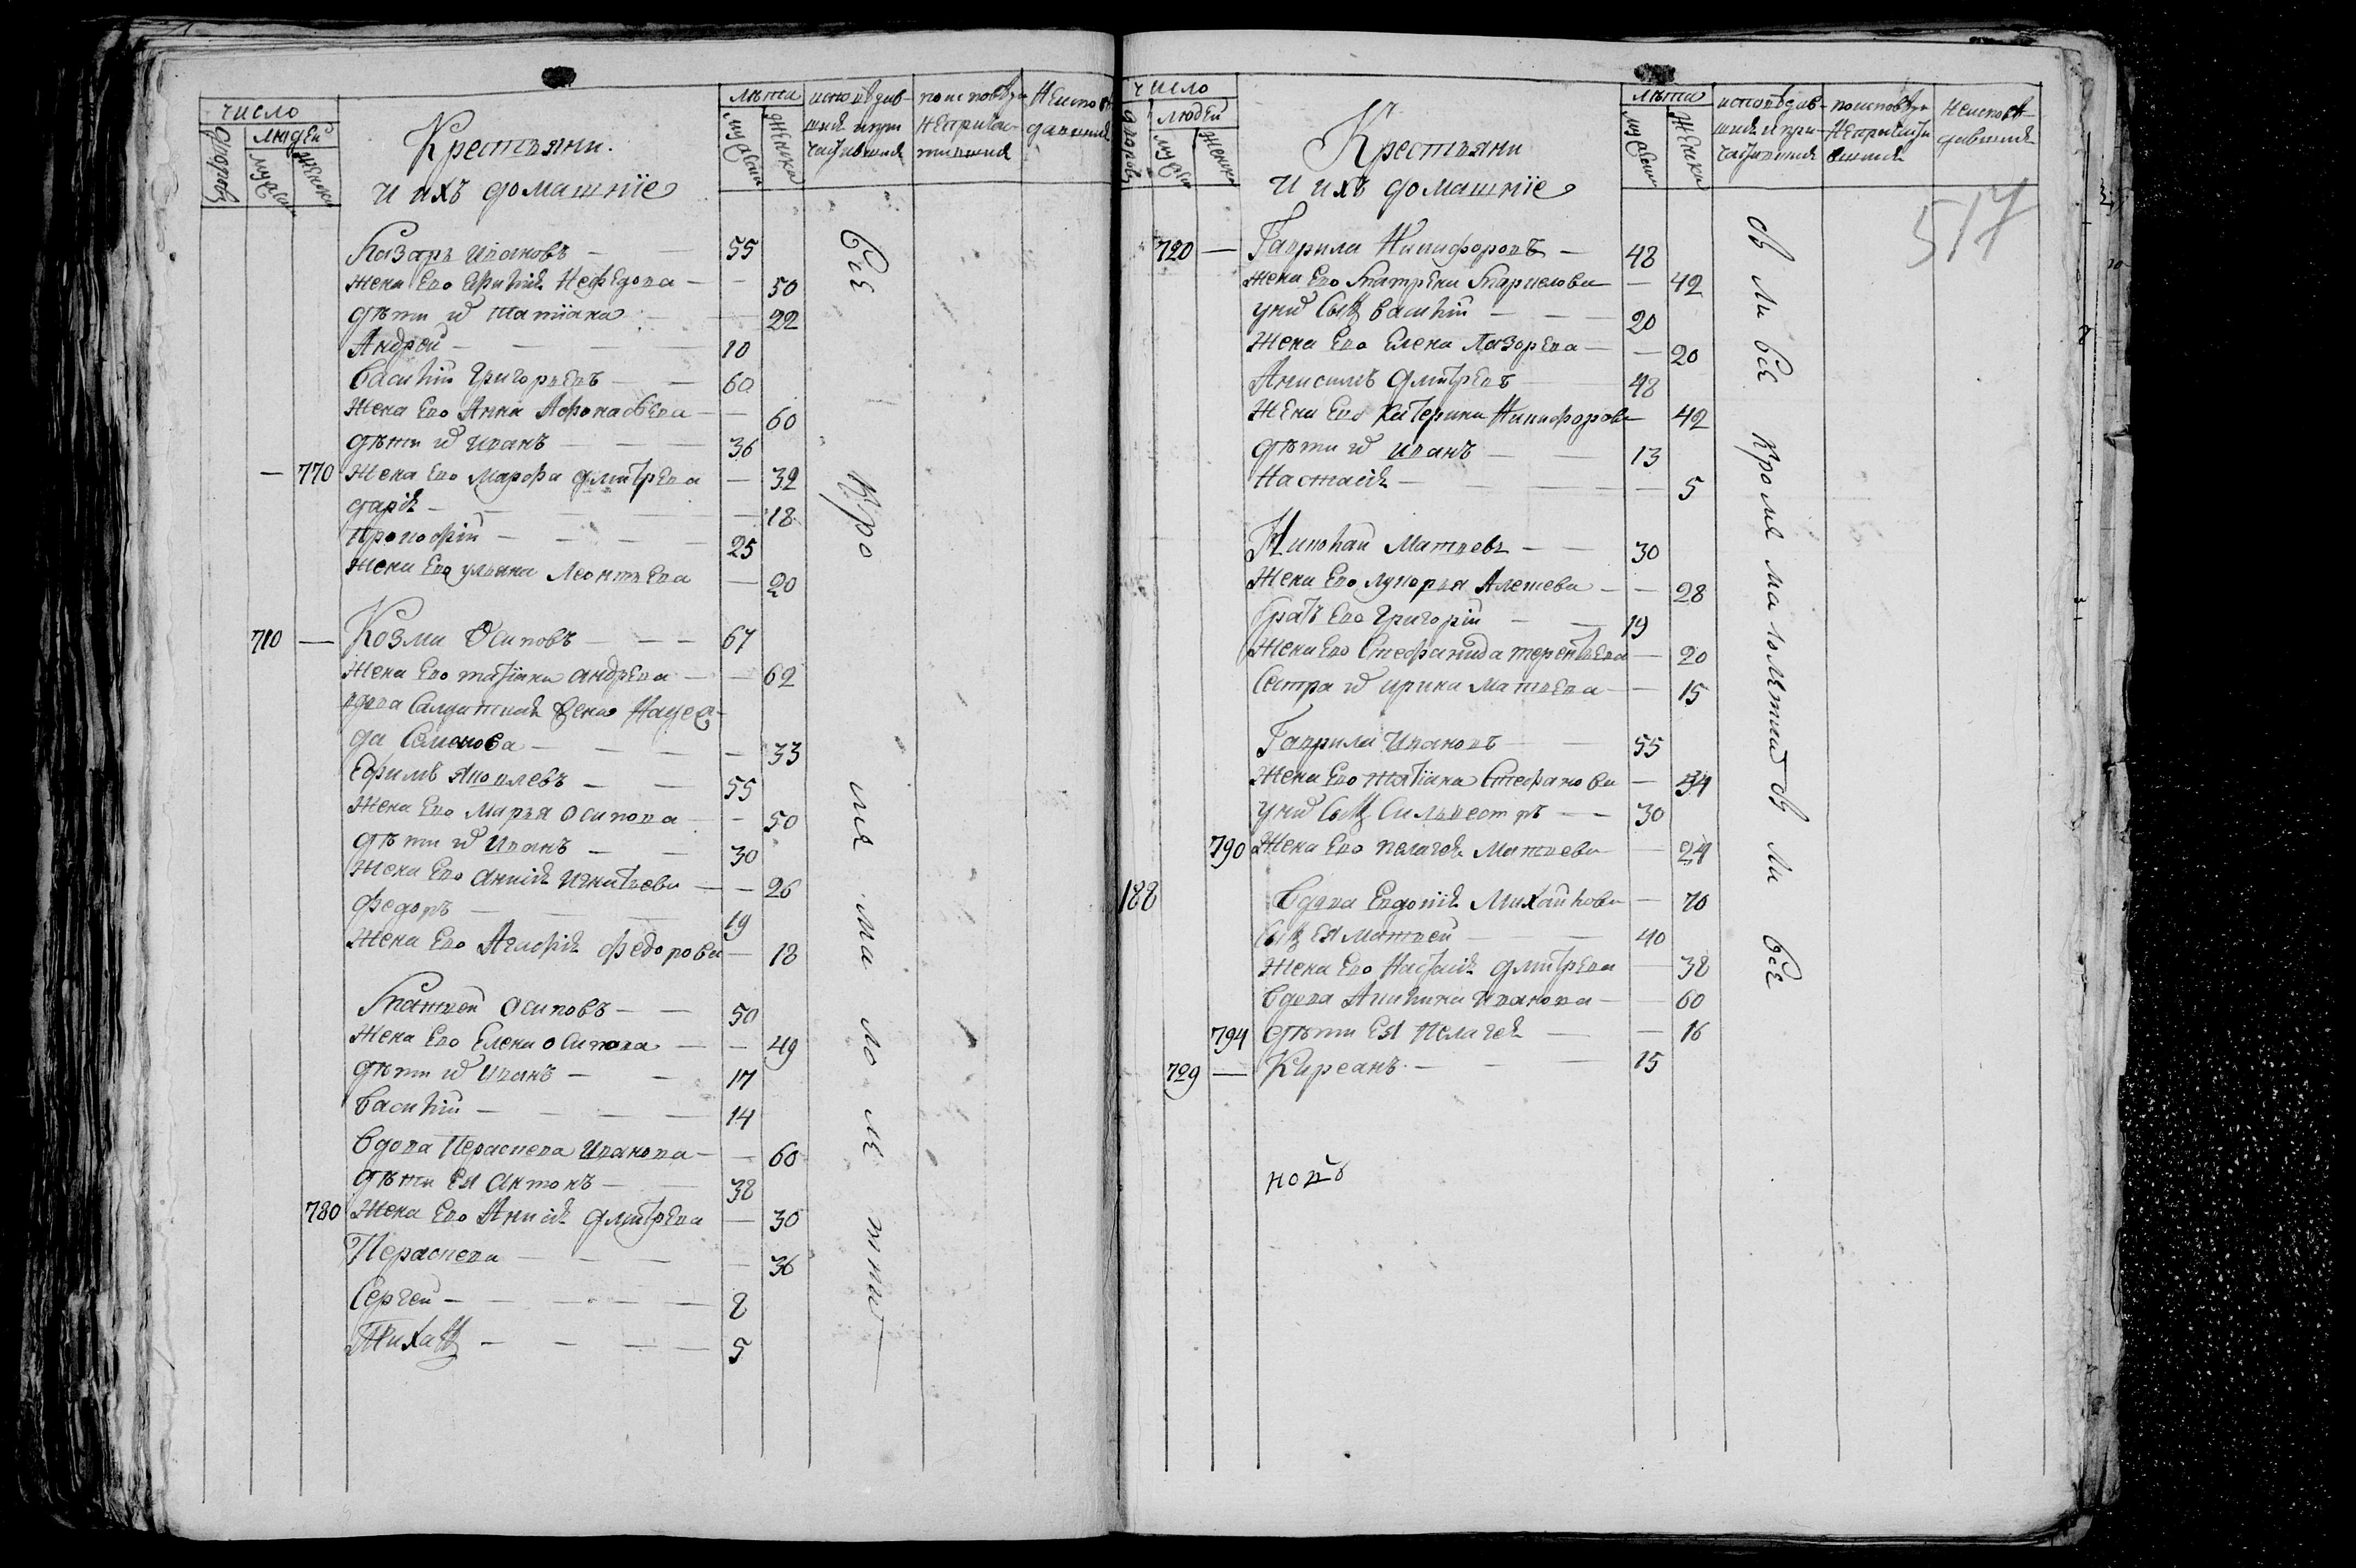 число
дворовъ
людей
мужеска
женска
Крестьяни
и ихъ домашніе
лѣта
мужеска
женска
исповѣдав-
шия и при
частившия
по исповѣди
неприча-
тившия
неисповѣ-
давшия
Лазарь Ивановъ — 55
жена Ево Нефедова — 50
дѣти ихъ татiана — 22
Андрей — 10
василiй Григорьевъ — 60
жена Ево Анна Афонасьева — 60
дѣти ихъ иванъ — 36
— 770 жена Ево марфа дмитрева — 32
дарiя — 18
прокофiй — 25
жена Ево ульяна Леонтьева — 20
710 — Козма Осиповъ — 67
жена Ево татiана андрева — 62
вдова салдатская жена Надеж-
да Семенова — 33
Ефимъ яковлевъ — 55
жена Ево марья осипова — 50
дѣти ихъ иванъ — 30
жена Ево анисiя игнатьева — 26
федоръ — 19
жена Ево Агафiя федорова — 18
Пантѣй осиповъ — 50
жена Ево Елена осипова — 49
дѣти ихъ иванъ — 17
василiй — 14
вдова Пераскева Иванова — 60
дѣти Ея антонъ — 38
780 жена Ево Анисiя дмитрева — 30
Пераскева — 36
Сергей — 8
Тихан — 5
всѣ кро мѣ ма ло лѣ тнихъ
число
дворовъ
людей
мужеска
женска
Крестьяни
и ихъ домашніе
лѣта
мужеска
женска
исповѣдав-
шия и при-
частившия
по исповѣди
непричасти
вшия
неисповѣ-
давшия
517
720 — Гаврила Никифоровъ — 48
жена Ево Гаврилова — 42
у них сын василiй — 20
жена Ево Елена Лазорева — 20
Анисимъ дмитревъ — 48
жена Ево катерина Никифорова 42
дѣти ихъ иванъ — 13
Настасiя — 5
Николай матвевъ — 30
жена Ево лукерья Алешева — 28
братъ Ево григорiй — 19
жена Ево Стефанида терентьева — 20
сестра ихъ ирина матвева — 15
Гаврила Ивановъ — 55
жена Ево татiана Стефанова — 54
у них сын Сильвестръ — 30
790 жена Ево пелагея матвева — 24
188 вдова Евдокiя михайлова — 70
сын Ея матвей — 40
жена Ево Настасiя дмитрева — 38
вдова Акилина иванова — 60
794 дѣти Ея Пелагея — 16
729 — Кирсанъ — 15
попъ
всѣ кромя малолѣтнихъ